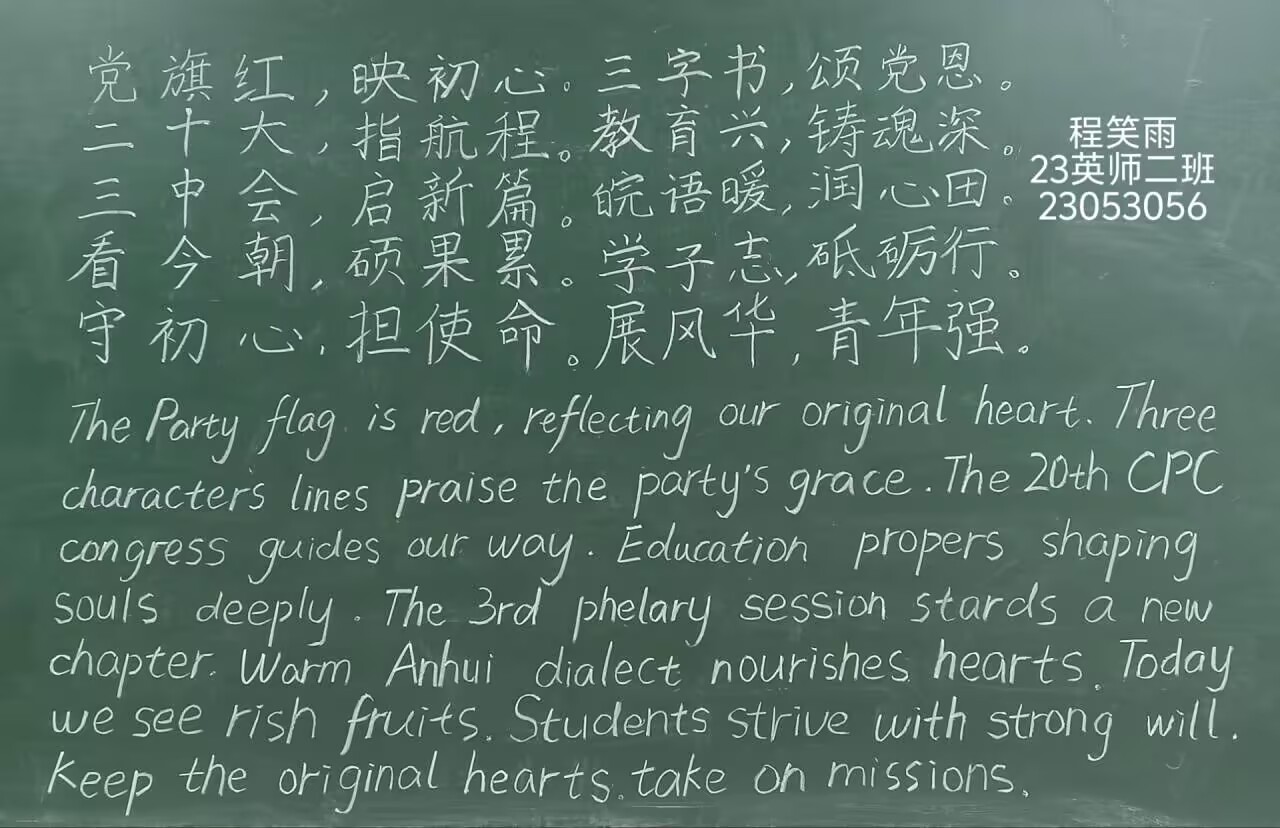 党旗红,映初心。三字书,颂党恩。
二十大,指航程。教育兴,铸魂深。
三中会,启新篇。皖语暖,润心田。
看今朝,硕果累。学子志,砥砺行。
守初心,担使命。展风华,青年强。
程笑雨
23英师二班
23053056
The Party flag is red, reflecting our original heart. Three
characters lines praise the party's grace. The 20th CPC
congress guides our way. Education propers shaping
souls deeply. The 3rd phelary session stards a new
chapter. Warm Anhui dialect nourishes hearts. Today
we see rish fruits. Students strive with strong will.
Keep the original hearts. take on missions.